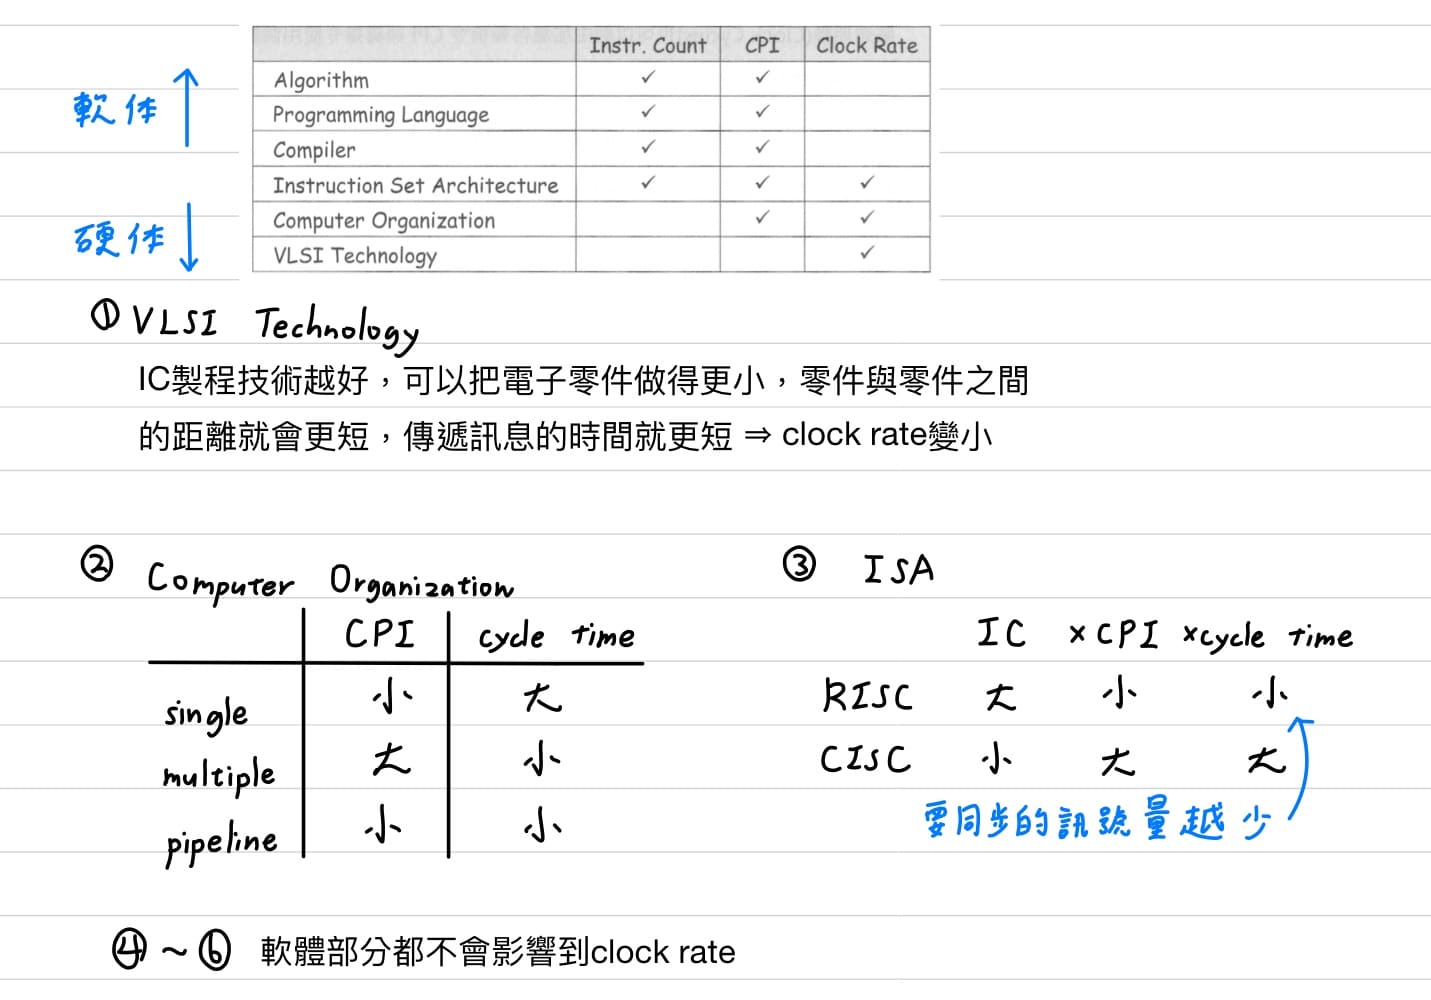 Instr. Count CPI Clock Rate
Algorithm ✓ ✓
Programming Language ✓ ✓
Compiler ✓ ✓
Instruction Set Architecture ✓ ✓ ✓
Computer Organization ✓ ✓
VLSI Technology ✓
軟体 ↑
硬体 ↓
① VLSI Technology
IC製程技術越好，可以把電子零件做得更小，零件與零件之間
的距離就會更短，傳遞訊息的時間就更短 ⇒ clock rate變小
② Computer Organization
CPI cycle time
single 小 大
multiple 大 小
pipeline 小 小
③ ISA
IC ×CPI ×cycle time
RISC 大 小 小
CISC 小 大 大
要同步的訊號量越少
④ ~ ⑥ 軟體部分都不會影響到clock rate